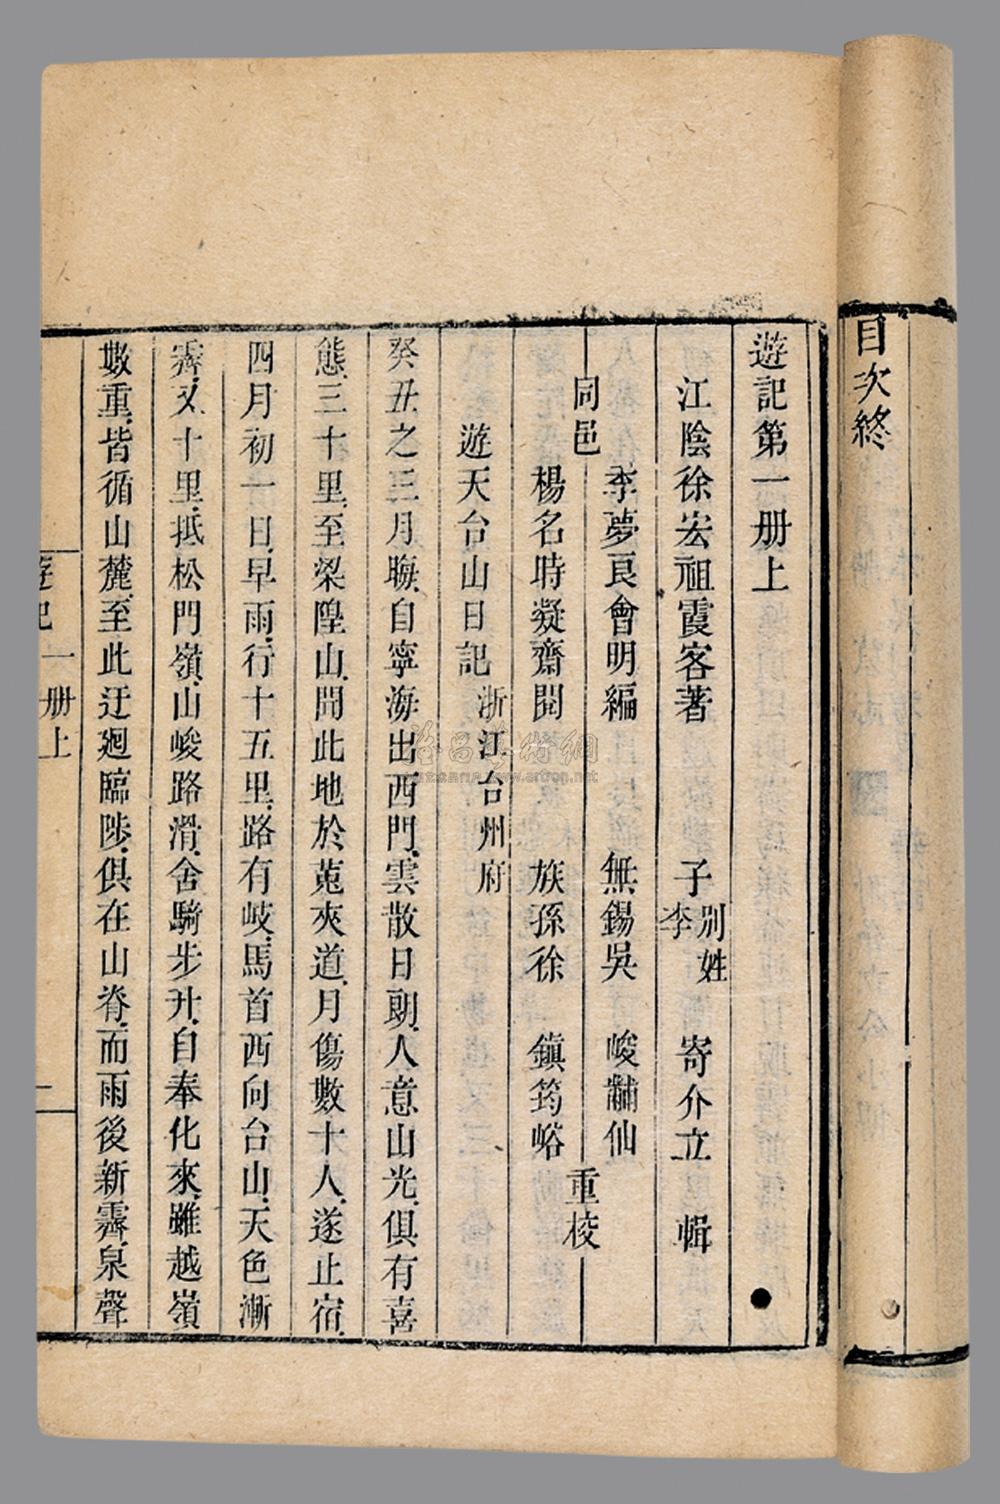 目次終
遊記第一册上
江陰徐宏祖霞客著 子李别姓 寄介立 輯
同邑 李夢良會明編 無錫吳 峻黼仙
楊名時凝齋閱 族孫徐 鎮筠峪 重校
遊天台山日記 浙江台州府
癸丑之三月聮、自寧海出西門、雲散日朗、人意山光、俱有喜
態、三十里、至梁隍山、聞此地於菟夾道、月傷數十人、遂止宿、
四月初一日、早雨、行十五里、路有岐、馬首西向台山、天色漸
霽、又十里、抵松門嶺、山峻路滑、舍騎步升、自奉化來、雖越嶺
數重、皆循山麓、至此迂廻臨陟、俱在山脊、而雨後新霽、泉聲
遊記 一册上 一
www.artron.net